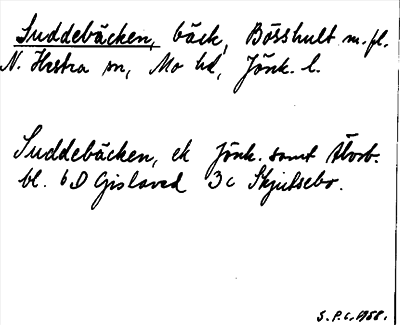 Suddebäcken, bäck, Bösshult m. fl.
N. Hestra sn, Mo hd, Jönk. l.
Suddebäcken, ek Jönk. samt Älvsb.
bl. 6D Gislaved 3c Skjutsebo.
S.P.C. 1958.